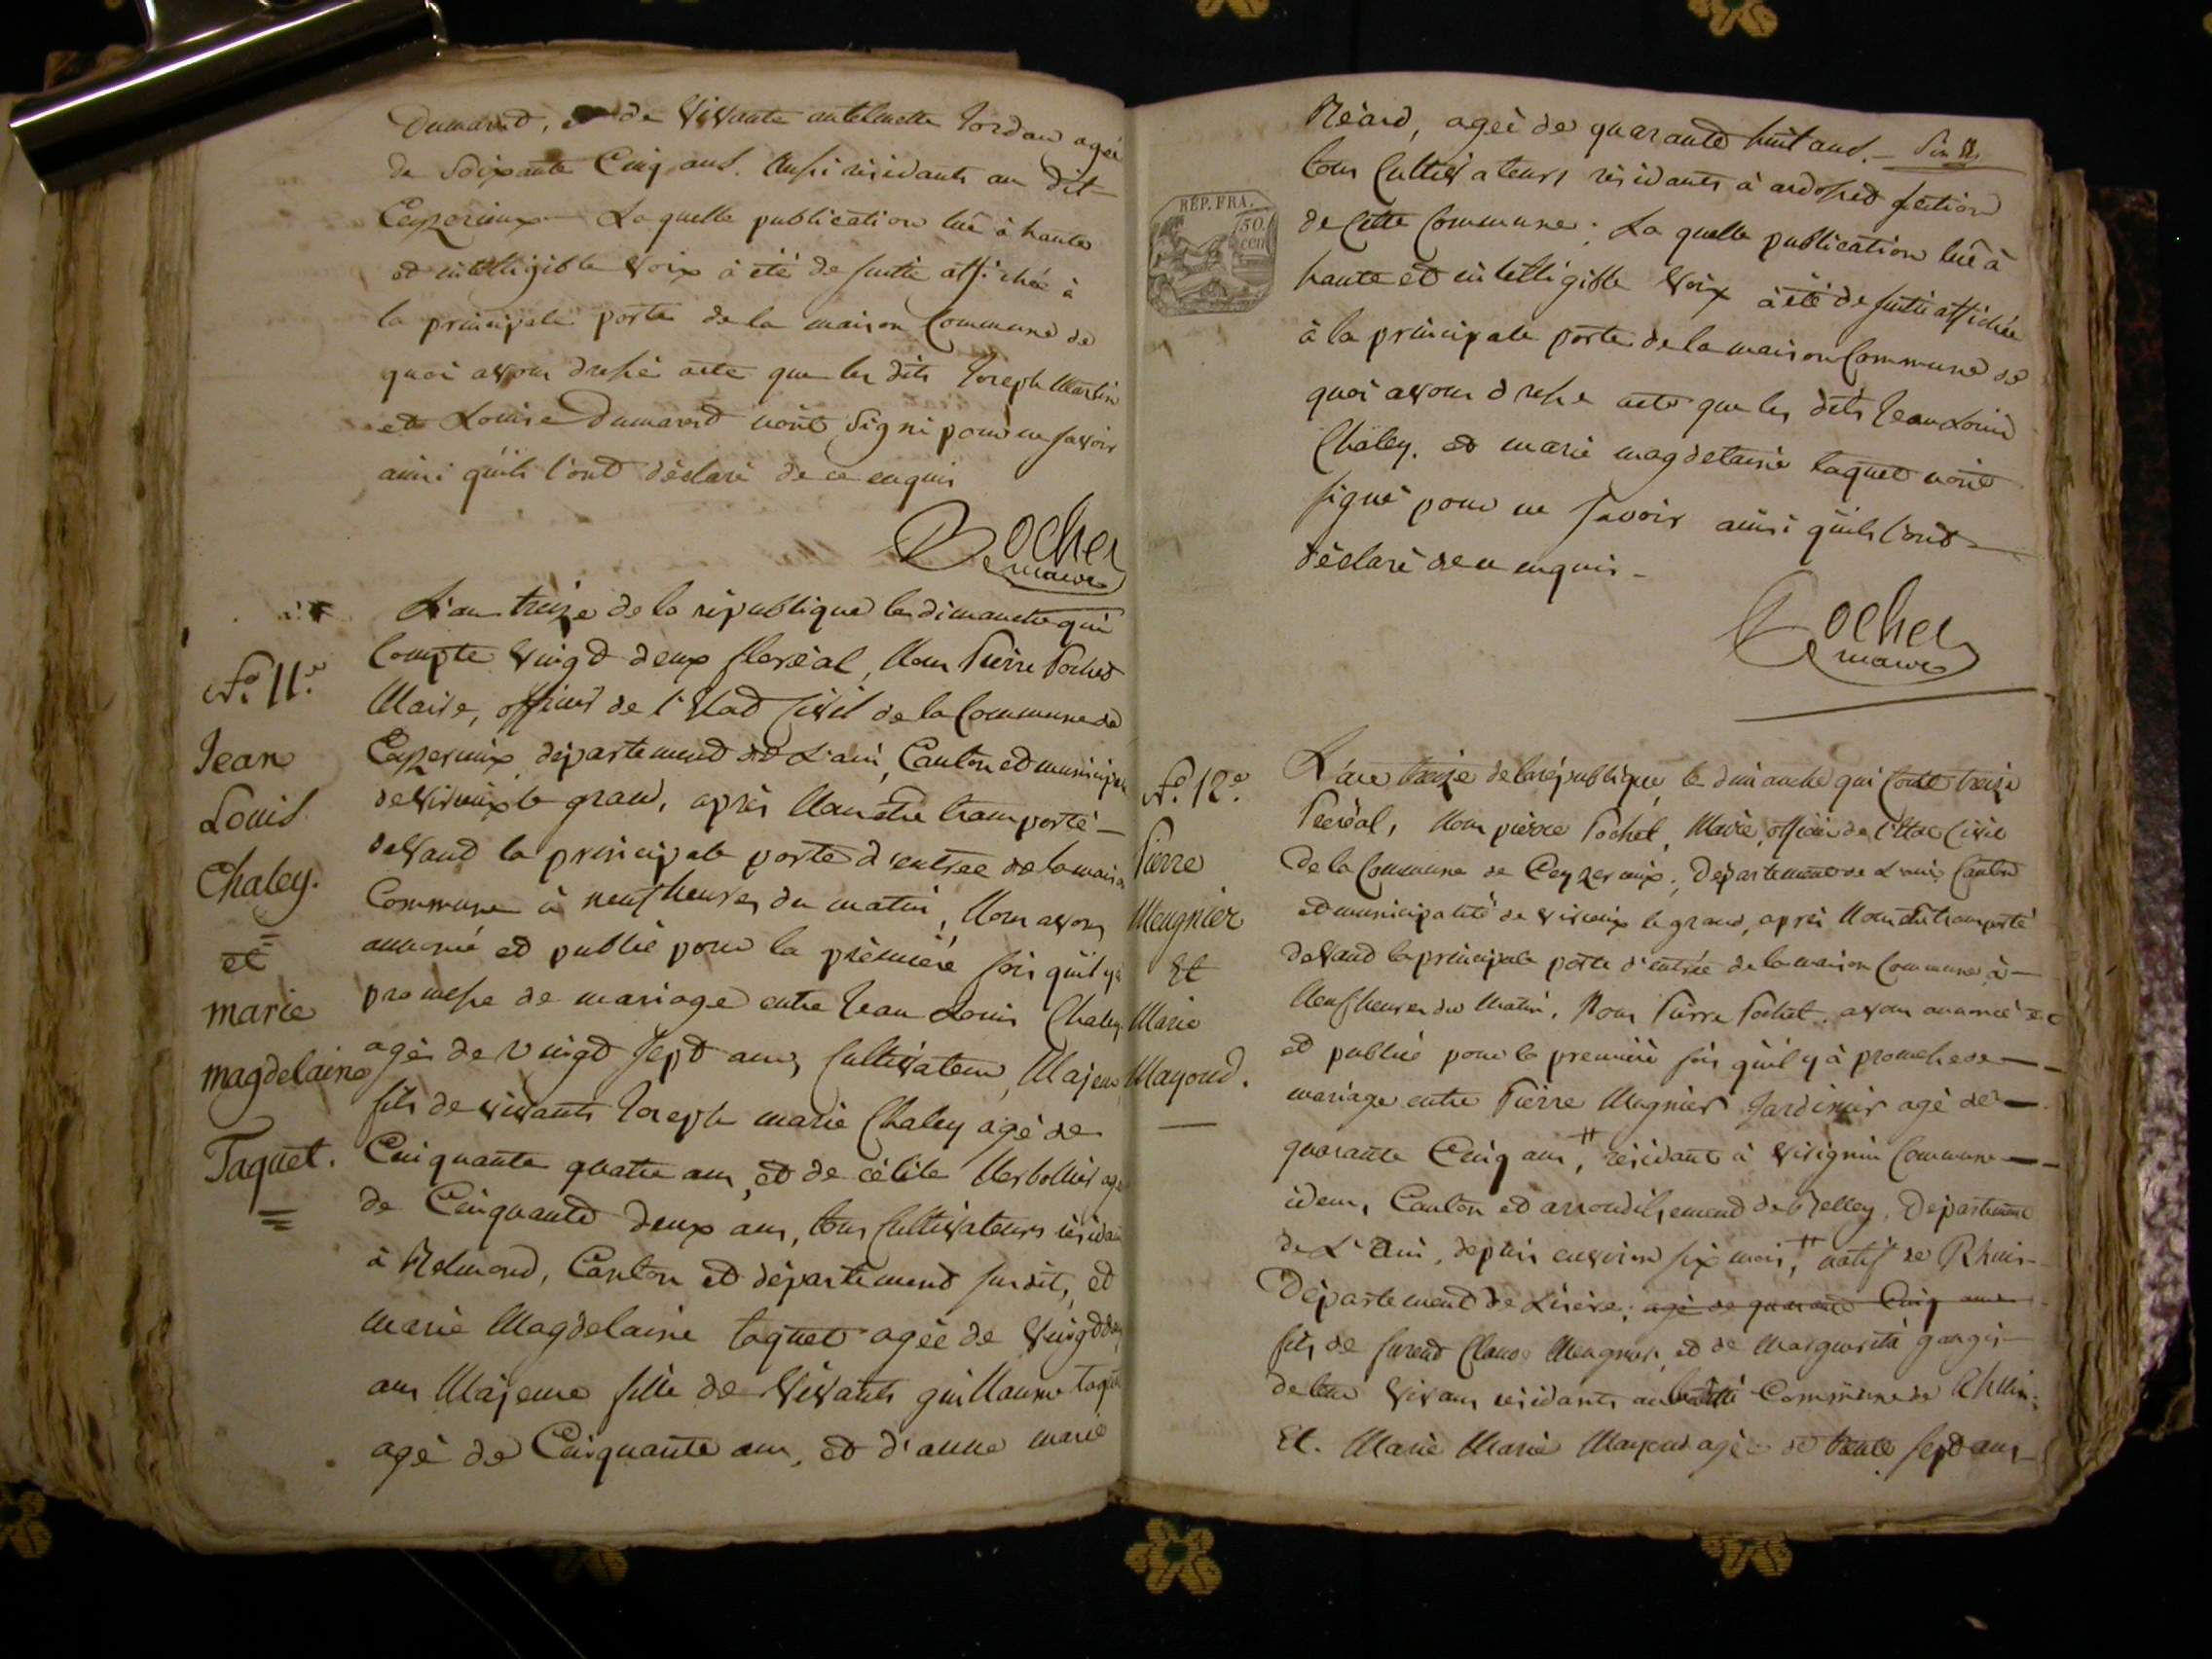 Dumarest, et de vivante antelmette Jordan agée
de soixante Cinq ans. Aussi résidants au dit
Ceyzerieux — La quelle publication lüe à haute
et intelligible voix à été de suitte affichée à
la principale porte de la maison Commune de
quoi avons dressé acte que les dits Joseph Martin
et Louise Dumarest n'ont signé pour ne savoir
ainsi qu'ils l'ont déclaré de ce enquis
Pochet
maire
L'an treize de la république le dimanche qui
Compte vingt deux floréal, Nous Pierre Pochet
Maire, officier de l'Etat Civil de la Commune de
Ceyzerieux, département de L'ain, Canton et municipa
de virieux le grand, après Nous être transporté —
devant la principale porte d'entrée de la maison
Commune à neuf heures du matin, Nous avons
annoncé et publié pour la première fois qu'il y a
promesse de mariage entre Jean Louis Chaley
agé de vingt sept ans, Cultivateur, Majeur,
fils de vivants Joseph marie Chaley agé de
Cinquante quatre ans, et de cécile agé
de Cinquante deux ans, tous Cultivateurs résidan
à Canton et département susdits, et
marie Magdelaine taquet agée de vingt deux
ans Majeure fille de vivants guillaume taquet
agé de Cinquante ans, et d'anne marie
N° 11e
Jean
Louis
Chaley.
et
marie
magdelaine
Taquet.
Réard, agée de quarante huit ans. —
tous Cultivateurs résidants à ardosset section
de Cette Commune. La quelle publication lüe à
haute et intelligible voix à été de suitte affichée
à la principale porte de la maison Commune de
quoi avons dressé acte que les dits Jean Louis
Chaley. et marie magdelaine taquet n'ont
signé pour ne savoir ainsi qu'ils l'ont —
déclaré de ce enquis —
Pochet
maire
REP. FRA.
50.
cen
N° 12e
Pierre
Meugnier
Et
Marie
Mayoud.
L'an treize de la république, le dimanche qui Compte treize
Préréal, Nous pierre Pochet, Maire, officier de l'Etat Civil
De la Commune de Ceyzerieux, Département de L'ain, Canton
et municipalité de virieux le grand, après Nous être transporté
devant la principale porte d'entrée de la maison Commune, à —
Neuf heures du Matin, Nous Pierre Pochet. avons annoncé
et publié pour la première fois qu'il y à promesse de —
mariage entre Pierre Mugnier Jardinier agé de —
quarante Cinq ans, # résidant à virignin Commune —
idem, Canton et arrondissement de Belley, Département
de L'Ain, depuis environ six mois, # natif de
Département de L'isère; agé de quarante Cinq ans
fils de furent Claude Meugnier, et de Marguerite
de leur vivans résidants Commune de
Et. Marie Marie Mayoud agée de trente sept ans